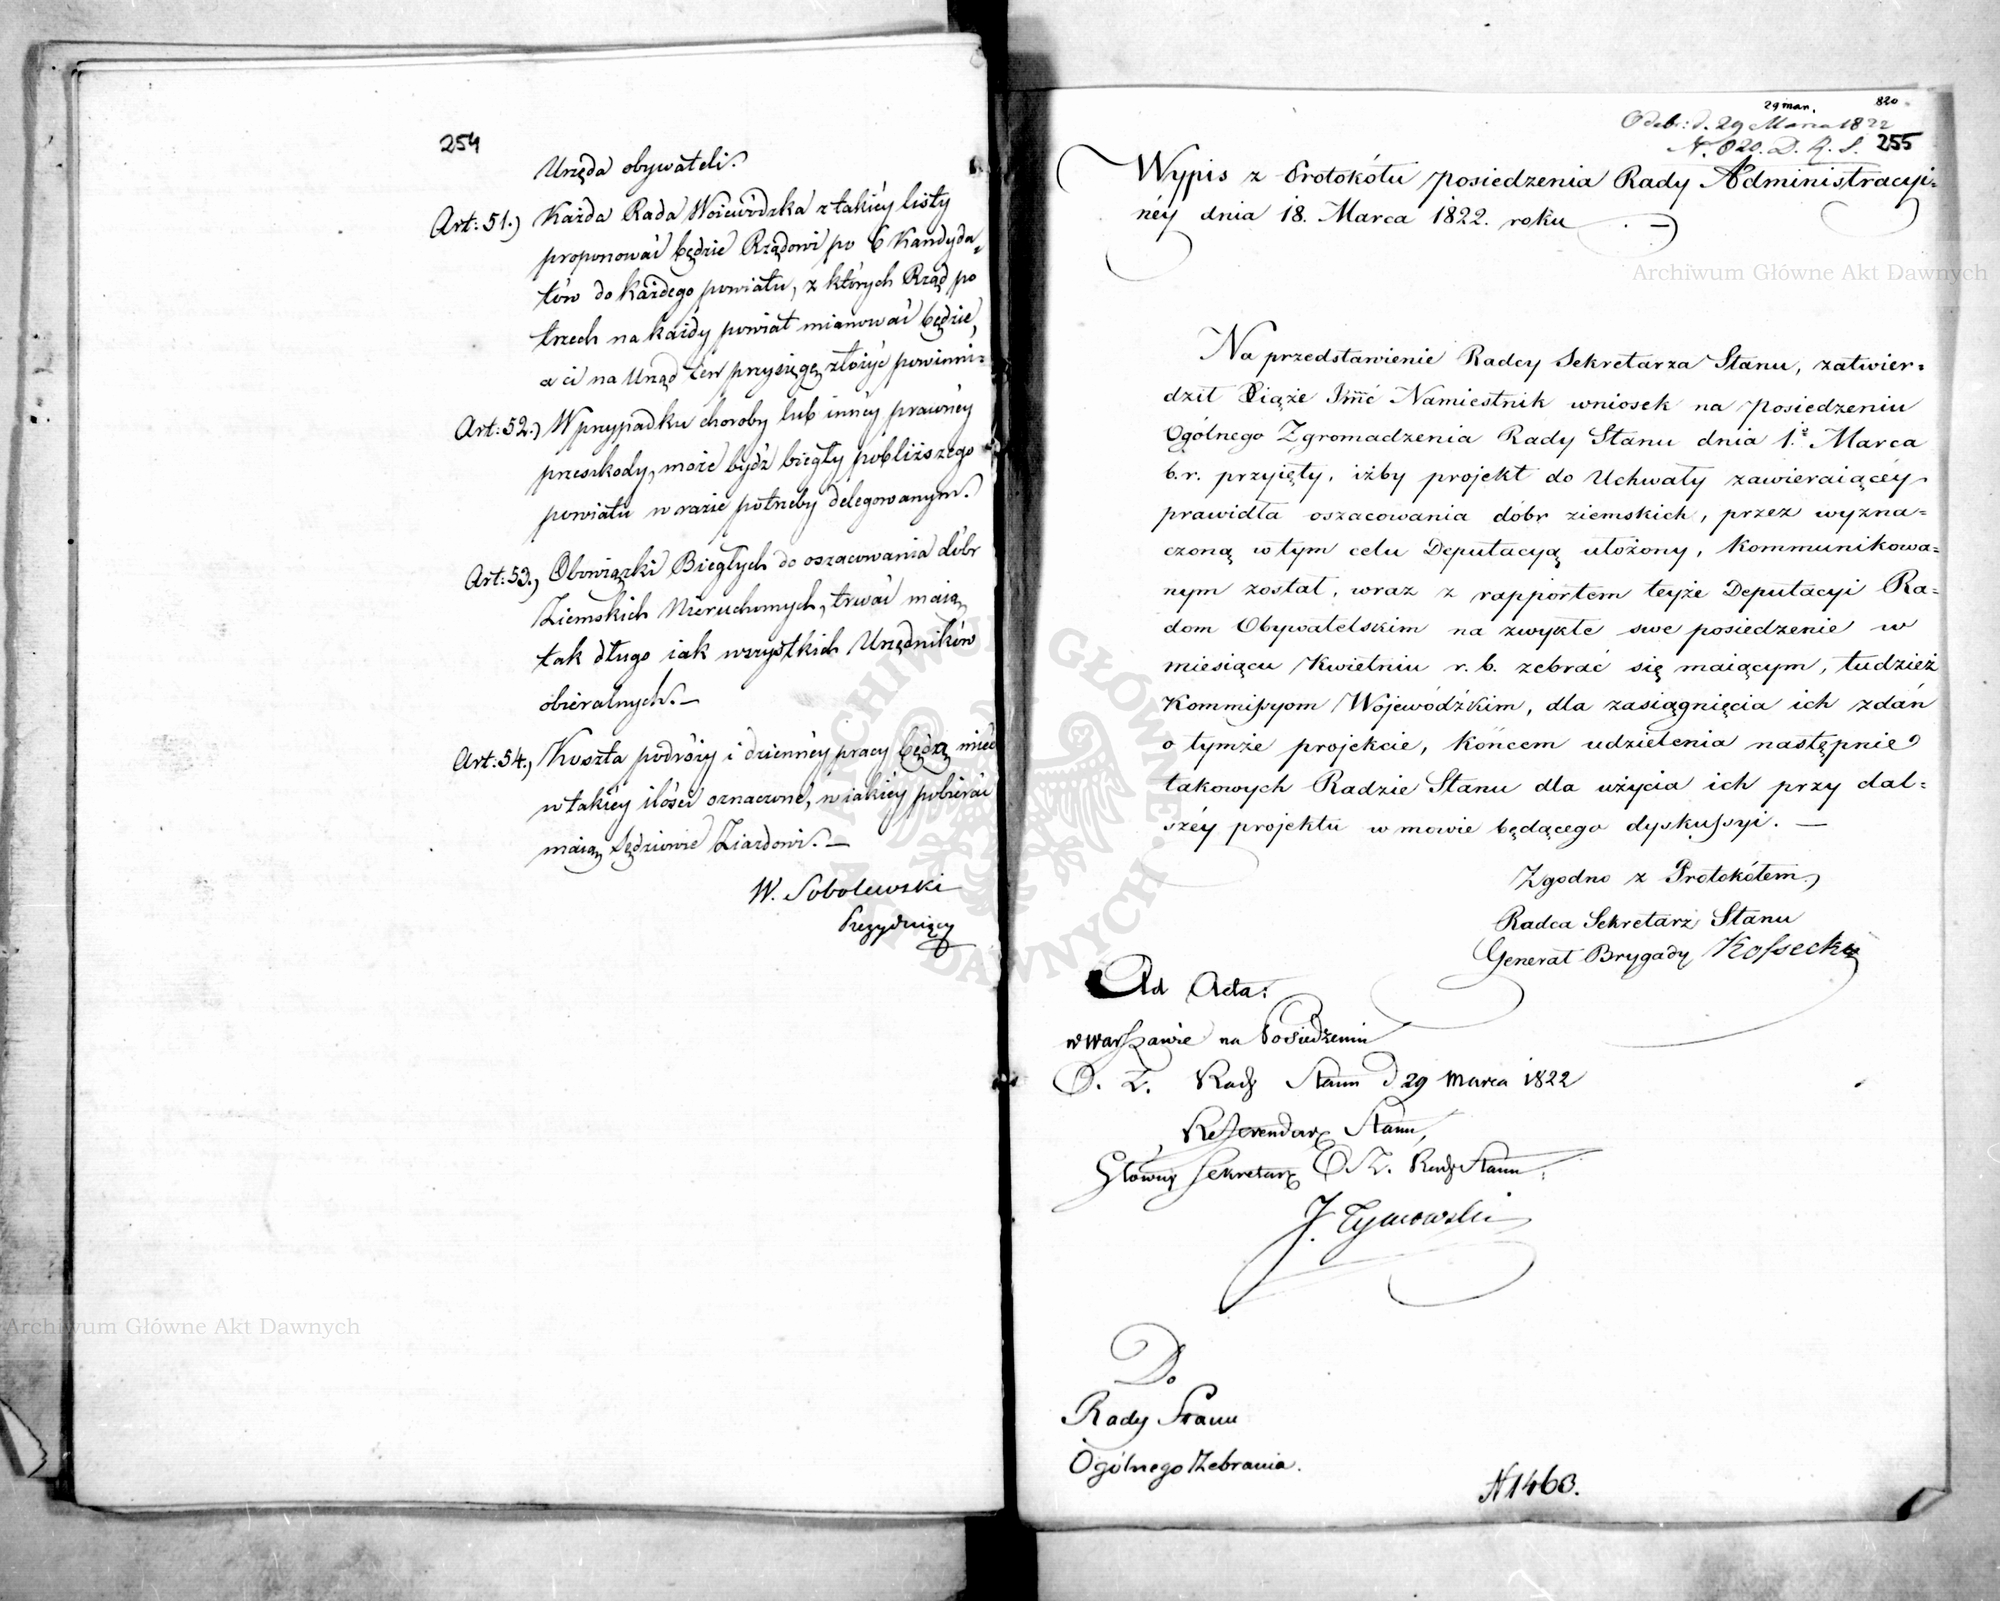 254
Urzęda obywateli.
Art: 51.) Każda Rada Woiewódzka z takiéy listy
proponować będzie Rządowi po 6 Kandyda-
tów do każdego powiatu, z których Rząd po
trzech na każdy powiat mianować będzie,
a ci na Urząd ten przysięgę złożyć powinni.
Art: 52.) W przypadku choroby lub innéy prawnéy
przeszkody, może bydź biegły pobliższego
powiatu w razie potrzeby delegowanym.
Art: 53.) Obowiązki Biegłych do oszacowania dóbr
Ziemskich Nieruchomych, trwać maią
tak długo iak wszystkich Urzędników
obieralnych.—
Art: 54.) Koszta podróży i dziennéy pracy będą mieć
w takiéy ilości oznaczone, w iakiéy pobierać
maią Sędziowie Ziazdowi.—
W. Sobolewski
Prezyduiący
29 mar. 820
Odebr: d. 29 Marca 1822
N. 820. D. R. S. 255
Wypis z Protokółu posiedzenia Rady Administracyi-
néy dnia 18. Marca 1822. roku.—
Na przedstawienie Radcy Sekretarza Stanu, zatwier-
dził Xiąże Jmć Namiestnik wniosek na posiedzeniu
Ogólnego Zgromadzenia Rady Stanu dnia 1. Marca
b.r. przyięty, iżby projekt do Uchwały zawieraiącéy
prawidła oszacowania dóbr ziemskich, przez wyzna-
czoną w tym celu Deputacyą ułożony, kommunikowa-
nym został, wraz z rapportem teyże Deputacyi Ra-
dom Obywatelskim na zwykłe swe posiedzenie w
miesiącu Kwietniu r.b. zebrać się maiącym, tudzież
Kommissyom Wojewódzkim, dla zasiągnięcia ich zdań
o tymże projekcie, końcem udzielenia następnie
takowych Radzie Stanu dla użycia ich przy dal-
széy projektu w mowie będącego dyskussyi.—
Zgodno z Protokółem,
Radca Sekretarz Stanu
Generał Brygady Kossecki
Ad Acta:
w Warszawie na Posiedzeniu
O. Z. Rady Stanu d 29 Marca 1822
Referendarz Stanu,
Główny Sekretarz O. Z. Rady Stanu.
J. Tymowski
Do
Rady Stanu
Ogólnego Zebrania.
N 1463.
Archiwum Główne Akt Dawnych
Archiwum Główne Akt Dawnych
ARCHIWUM GŁÓWNE AKT DAWNYCH